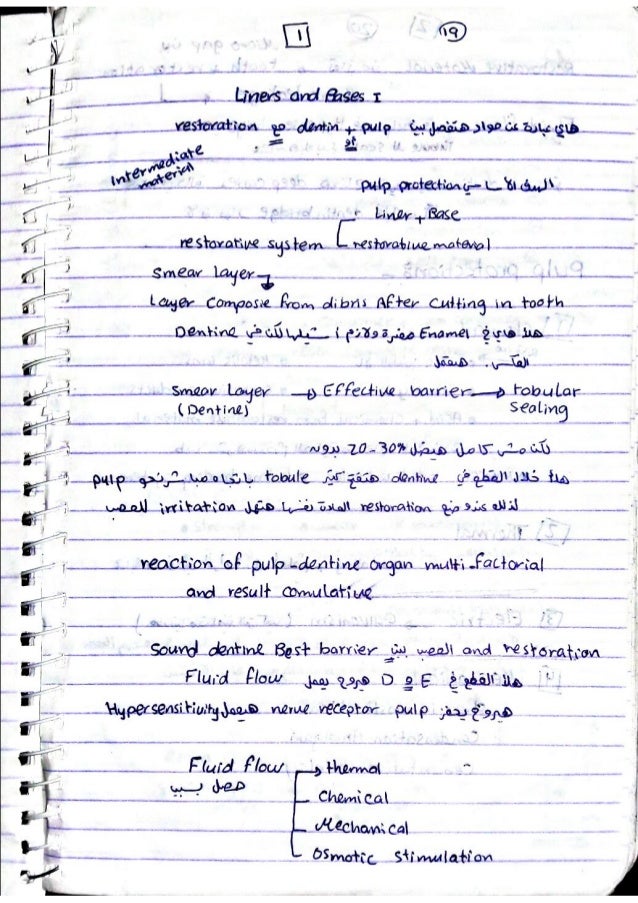 1
19
Liners and Bases I
هاي عبارة عن مواد هتفصل بين pulp + dentin مع restoration
أو
Intermediate material
الهدف الأساسي pulp protection
Liner + Base
restorative system restorative material
Smear layer
Layer Composie from dibris After cutting in tooth
هلأ هاي في Enamel مضرة ولازم أشيلها لكن في Dentine
العكس. هتعمل
Smear Layer → Effective barrier → tobular
(Dentine) Sealing
لكن مش كامل هيضل 20-30%
هلأ خلال القطع في dentine هتفتح كتير tobule باتجاه مباشر نحو pulp
لذلك عند وضع restoration المادة نفسها هتعمل irritation للعصب
reaction of pulp-dentine organ multi-factorial
and result comulative
Sound dentine Best barrier بين العصب and restoration
هلأ القطع في E و D هيروح يعمل Fluid flow
هيروح يحفز pulp nerve receptor هيعمل Hypersensitivity
Fluid flow → thermal
حصل بسبب
Chemical
Mechanical
Osmotic stimulation